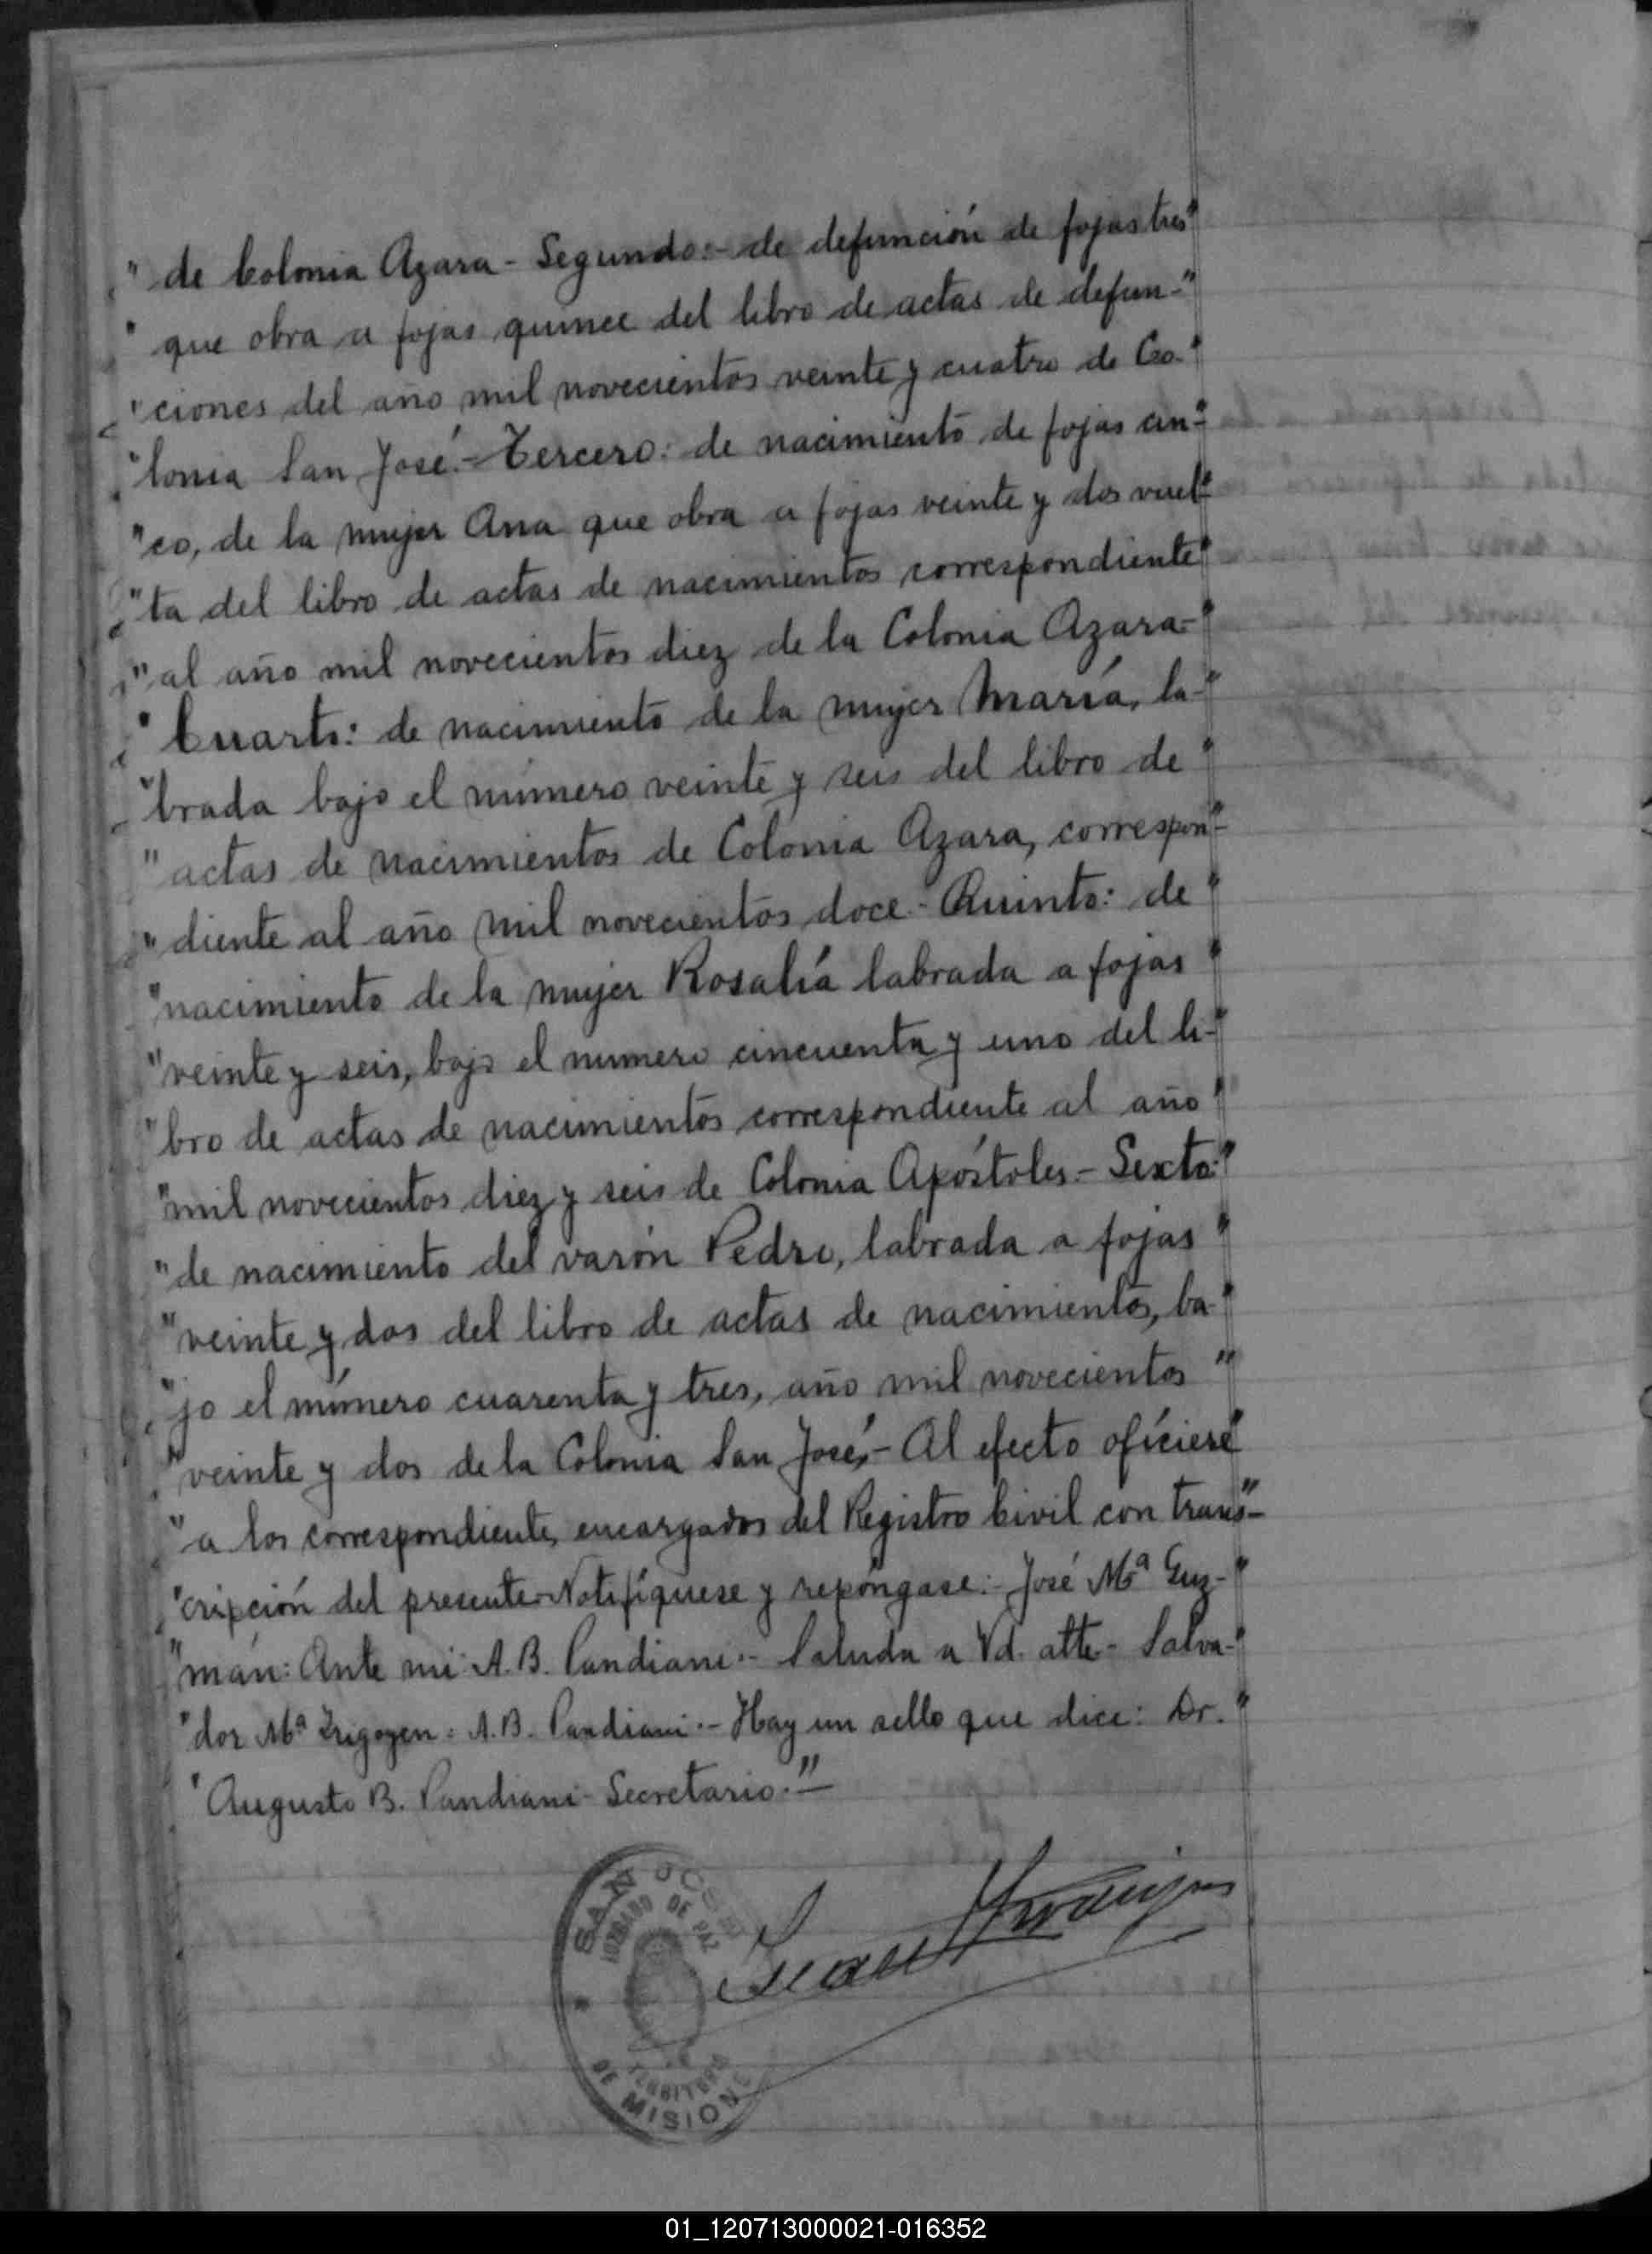 " de Colonia Azara - Segundo:- de defunción de fojas tres"
" que obra a fojas quince del libro de actas de defun-"
"ciones del año mil novecientos veinte y cuatro de Co-"
"lonia San José.- Tercero: de nacimiento de fojas cin-"
"co, de la mujer Ana que obra a fojas veinte y dos vuel-"
"ta del libro de actas de nacimientos correspondiente"
"al año mil novecientos diez de la Colonia Azara-"
"Cuarto: de nacimiento de la mujer María, la-"
"brada bajo el número veinte y seis del libro de"
"actas de nacimientos de Colonia Azara, correspon-"
"diente al año mil novecientos doce.- Quinto: de"
"nacimiento de la mujer Rosalía labrada a fojas"
"veinte y seis, bajo el numero cincuenta y uno del li-"
"bro de actas de nacimientos correspondiente al año"
"mil novecientos diez y seis de Colonia Apóstoles.- Sexto:"
"de nacimiento del varón Pedro, labrada a fojas"
"veinte y dos del libro de actas de nacimientos, ba-"
"jo el número cuarenta y tres, año mil novecientos"
"veinte y dos de la Colonia San José,- Al efecto ofíciese"
"a los correspondiente, encargados del Registro Civil con trans-"
"cripción del presente-Notifíquese y repóngase:- José Mª Guz-"
"mán: Ante mi: A. B. Pandiani.- Saluda a Vd. atte- Salva-"
"dor Mª Irigoyen: A. B. Pandiani.- Hay un sello que dice: Dr."
"Augusto B. Pandiani- Secretario."-
SAN JOSE
JUZGADO DE PAZ
TERRITORIO
DE MISIONES
01_120713000021-016352